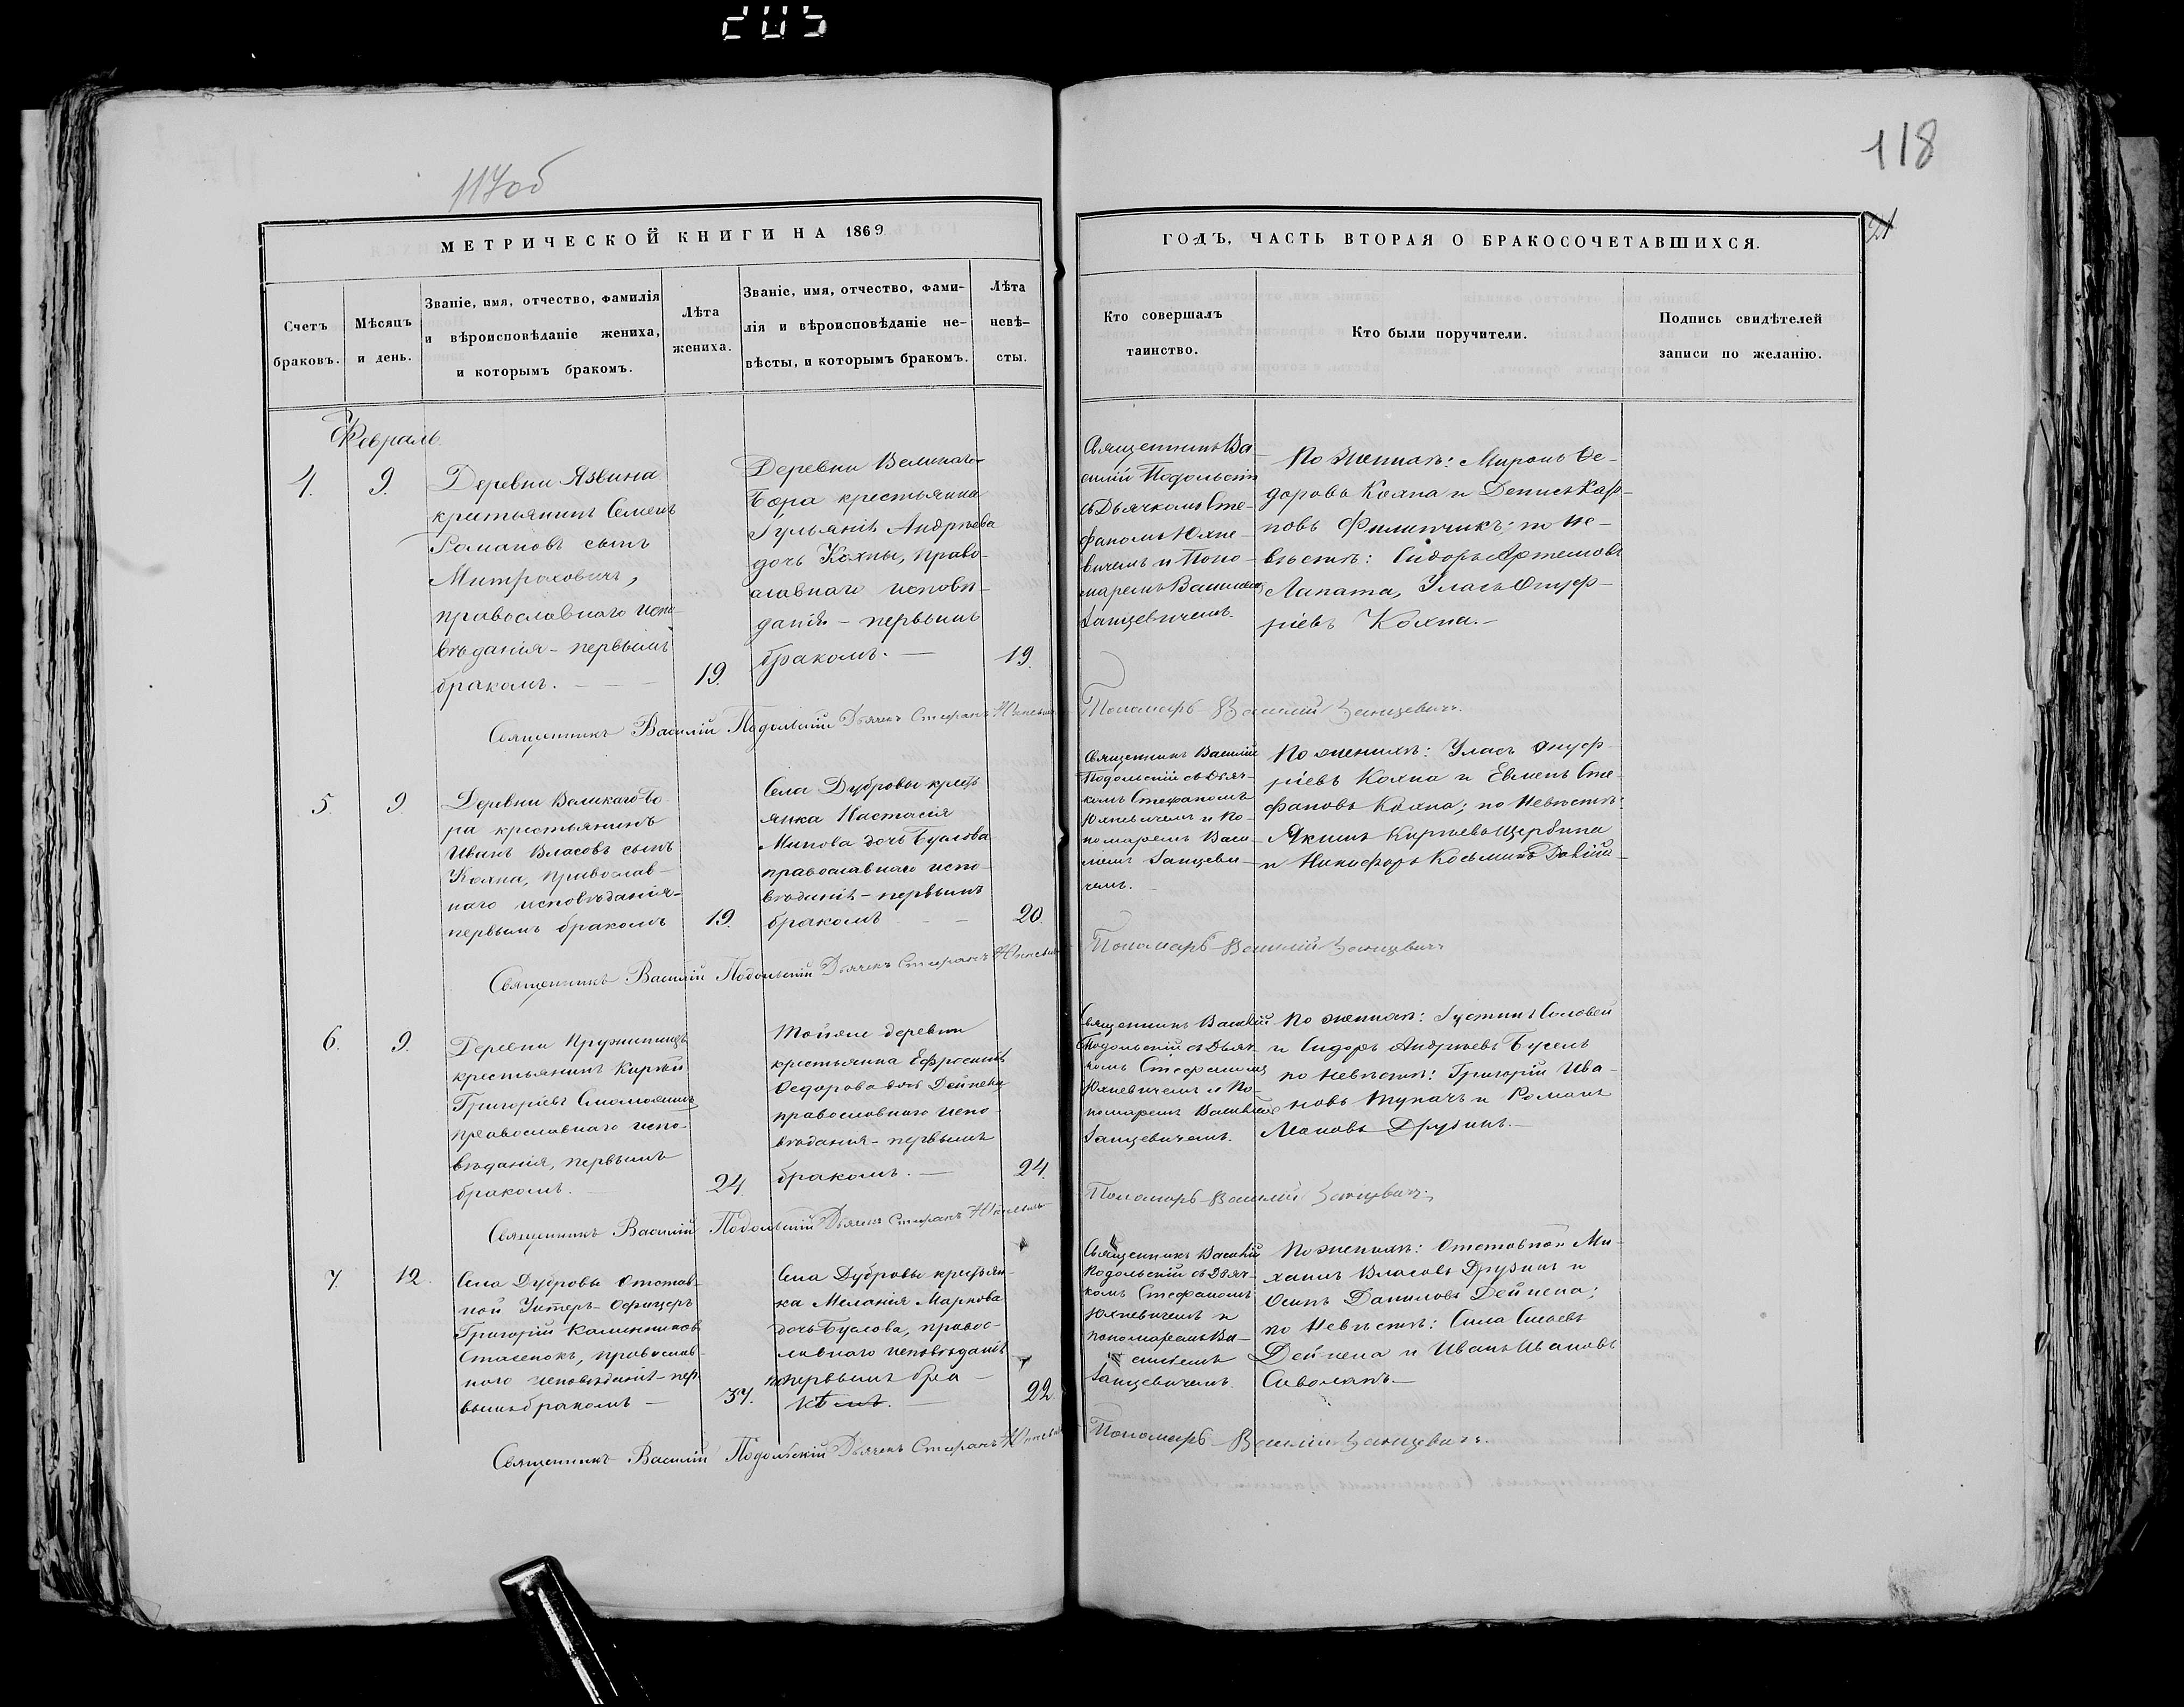 205
117об
118
21
МЕТРИЧЕСКОЙ КНИГИ НА 1869
ГОДЪ, ЧАСТЬ ВТОРАЯ О БРАКОСОЧЕТАВШИХСЯ.
Счетъ
браковъ.
Мѣсяцъ
и день.
Званіе, имя, отчество, фамилія
и вѣроисповѣданіе жениха,
и которымъ бракомъ.
Лѣта
жениха.
Званіе, имя, отчество, фами-
лія и вѣроисповѣданіе не-
вѣсты, и которымъ бракомъ.
Лѣта
невѣ-
сты.
Кто совершалъ
таинство.
Кто были поручители.
Подпись свидѣтелей
записи по желанію.
Февраль
4.
9.
Деревни Язвина
крестьянинъ Семенъ
Романовъ сынъ
Митраховичъ,
православнаго испо-
вѣданія - первымъ
бракомъ.
19.
Деревни Великаго-
Бора крестьянка
Іульянія Андреева
дочь Кохны, право-
славнаго исповѣ-
данія - первымъ
бракомъ.
19.
Священникъ Ва-
силій Подольскій
съ Дьячкомъ Сте-
фаномъ Юхне-
вичемъ и Поно-
маремъ Василіемъ
Занцевичемъ.
По женихѣ: Миронъ Ѳе-
доровъ Кохна и Денисъ Кар-
повъ Филипчикъ; по не-
вѣстѣ: Сидоръ Артемовъ
Лапата, Уласъ Онуф-
ріевъ Кохна.
Священникъ Василій Подольскій Дьячекъ Стефанъ Юхневичъ
Пономарь Василій Занцевичъ.
5.
9.
Деревни Великаго-Бо-
ра крестьянинъ
Иванъ Власовъ сынъ
Кохна, православ-
наго исповѣданія-
первымъ бракомъ
19.
Села Дубровы кресть
янка Настасія
Минова дочь Буглова
православнаго испо-
вѣданія - первымъ
бракомъ
20.
Священникъ Василій
Подольскій съ Дьяч-
комъ Стефаномъ
Юхневичемъ и По-
номаремъ Васи-
ліемъ Занцеви-
чемъ.
По женихѣ: Уласъ Онуф-
ріевъ Кохна и Евменъ Сте-
фановъ Кохна; по невѣстѣ:
Якимъ Кирѣевъ Щербина
и Никифоръ Косьминъ
Священникъ Василій Подольскій Дьячекъ Стефанъ Юхневичъ
Пономарь Василій Занцевичъ
6.
9.
Деревни Пружинищъ
крестьянинъ Кирѣй
Григоріевъ
православнаго испо-
вѣданія, первымъ
бракомъ.
24.
Тойже деревни
крестьянка Ефросинія
Ѳедорова дочь Дейнека
православнаго испо-
вѣданія - первымъ
бракомъ.
24.
Священникъ Василій
Подольскій съ Дьяч-
комъ Стефаномъ
Юхневичемъ и По-
номаремъ Василіемъ
Занцевичемъ.
По женихѣ: Іустинъ Соловей
и Сидоръ Андреевъ Бусель
по невѣстѣ: Григорій Ива-
новъ и Романъ
Друзикъ.
Священникъ Василій Подольскій Дьячекъ Стефанъ Юхневичъ
Пономарь Василій Занцевичъ.
7.
12.
Села Дубровы Отстав-
ной Унтеръ-Офицеръ
Григорій Калинниковъ
Стасенокъ, православ-
наго исповѣданія - пер-
вымъ бракомъ
37.
Села Дубровы крестьян-
ка Меланія Маркова
дочь Буглова, правос-
лавнаго исповѣданія
первымъ бра-
комъ.
22.
Священникъ Василій
Подольскій съ Дьяч-
комъ Стефаномъ
Юхневичемъ и
пономаремъ Ва-
силіемъ
Занцевичемъ.
По женихѣ: Отставной Ми-
хаилъ Власовъ Друзикъ и
Осипъ Даниловъ Дейнека;
по невѣстѣ: Сила Сисоевъ
Дейнека и Иванъ Ивановъ
Священникъ Василій Подольскій Дьячекъ Стефанъ Юхневичъ
Пономарь Василій Занцевичъ.